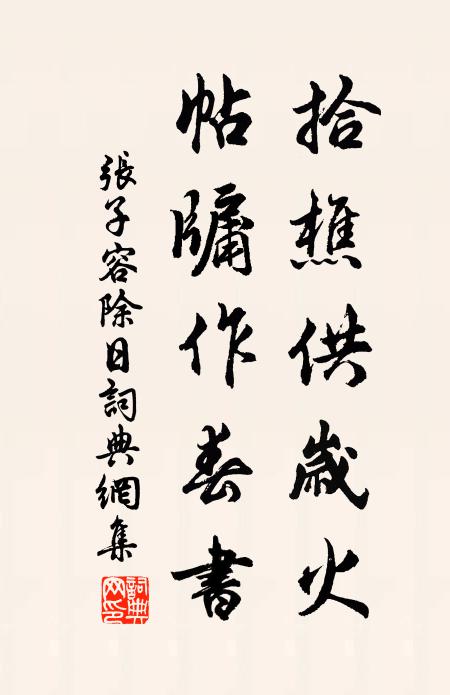 拾樵供歲火
帖牖作春書
張子容除日詞典網集
詞典網印